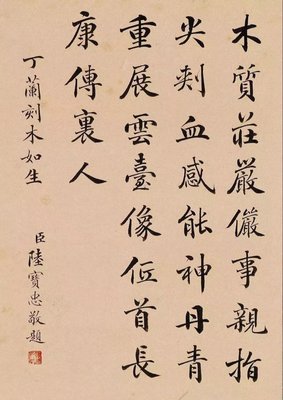 木質莊嚴儼事親指
尖刾血感能神丹青
重展雲臺像位首長
康傳裏人
丁蘭刻木如生
臣陸寶忠敬題